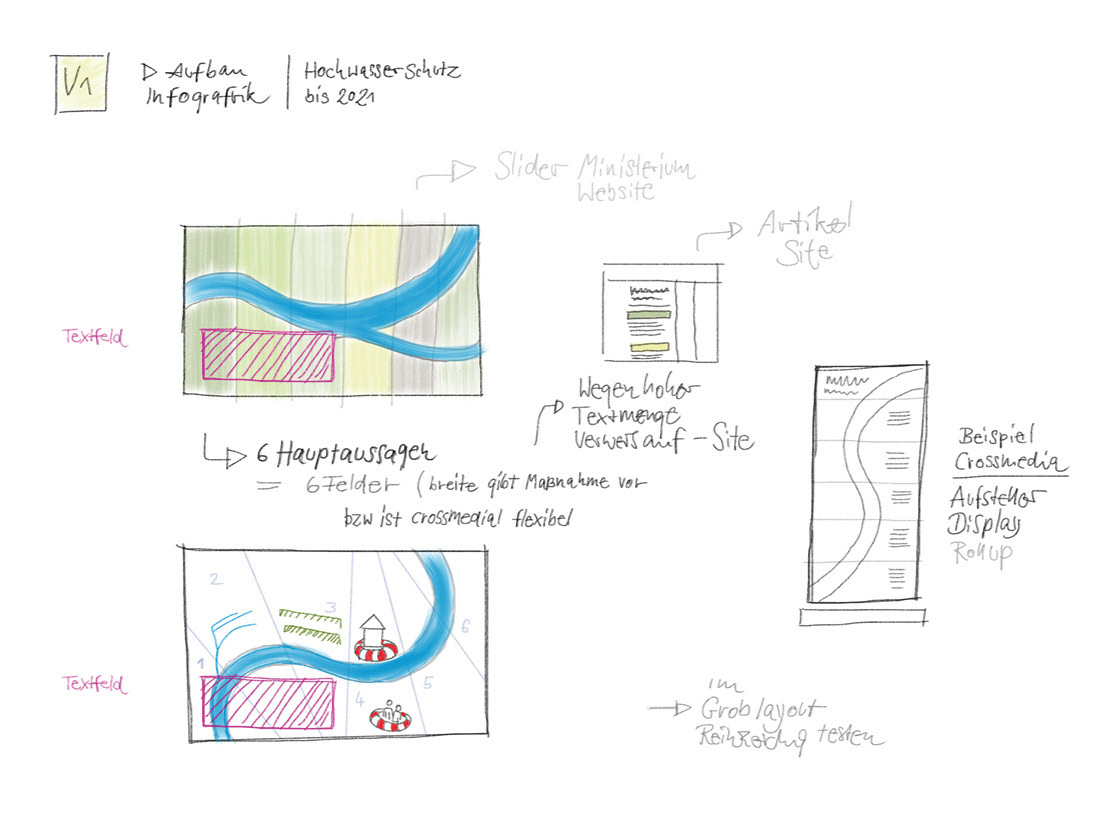 V1
Aufbau
Infografik
Hochwasserschutz
bis 2021
Slider Ministerium
Website
Artikel
Site
Textfeld
Wegen hoher
Textmenge
Verweis auf - Site
6 Hauptaussagen
= 6 Felder (breite gibt Maßnahme vor
bzw ist crossmedial flexibel
Beispiel
Crossmedia
Aufsteller
Display
Rollup
2
3
6
1
5
4
Textfeld
im
Groblayout
testen